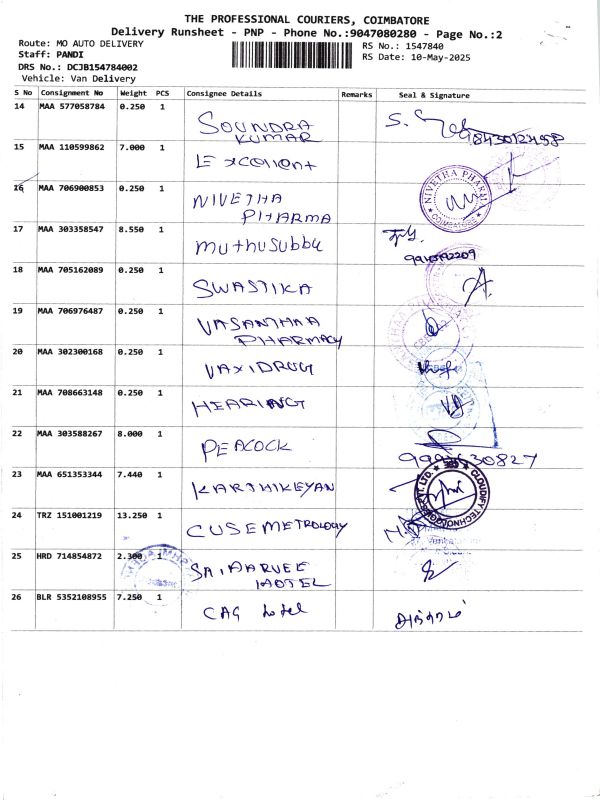 THE PROFESSIONAL COURIERS, COIMBATORE
Delivery Runsheet - PNP - Phone No.:9047080280 - Page No.:2
Route: MO AUTO DELIVERY
RS No.: 1547840
Staff: PANDI
RS Date: 10-May-2025
DRS No.: DCJB154784002
Vehicle: Van Delivery
S No Consignment No Weight PCS Consignee Details Remarks Seal & Signature
14 MAA 577058784 0.250 1 SOUNDRA
KUMAR
15 MAA 110599862 7.000 1 Excellent
16 MAA 706900853 0.250 1 NIVETHA
PHARMA
NIVETHA PHARMA
COIMBATORE
17 MAA 303358547 8.550 1 muthusubbu
18 MAA 705162089 0.250 1 SWASTIKA
19 MAA 706976487 0.250 1 VASANTHAA
PHARMACY
20 MAA 302300168 0.250 1 VAXIDRUG
21 MAA 708663148 0.250 1 HEARING
22 MAA 303588267 8.000 1 PEACOCK
23 MAA 651353344 7.440 1 KARTHIKEYAN
CLOUDIFY TECHNOLOGIES PVT. LTD.
24 TRZ 151001219 13.250 1 CUSEMETROLOGY
25 HRD 714854872 2.300 1 SAI AARVEE
HOTEL
26 BLR 5352108955 7.250 1 CAG hotel